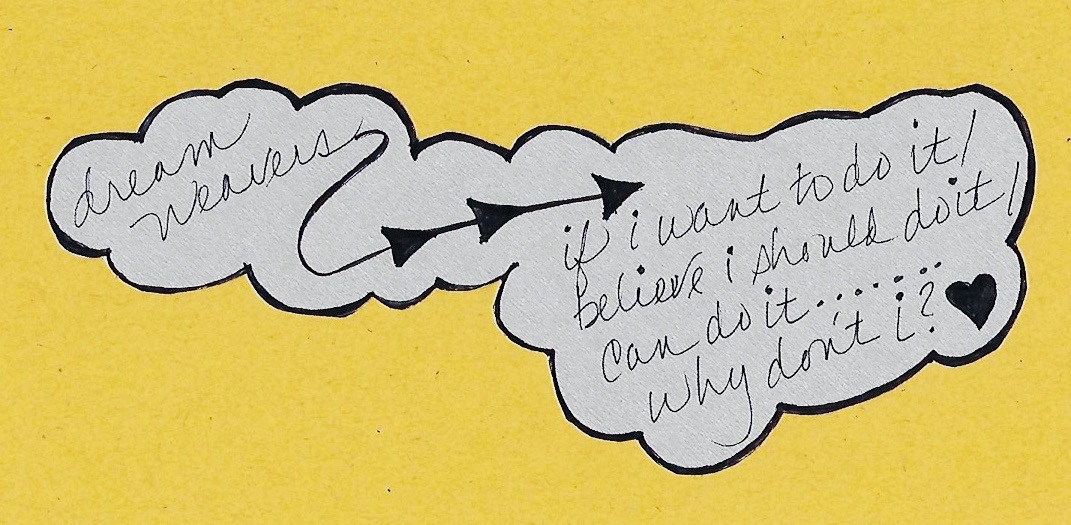 dream
weavers
if i want to do it/
believe i should do it/
can do it..........
why don't i?